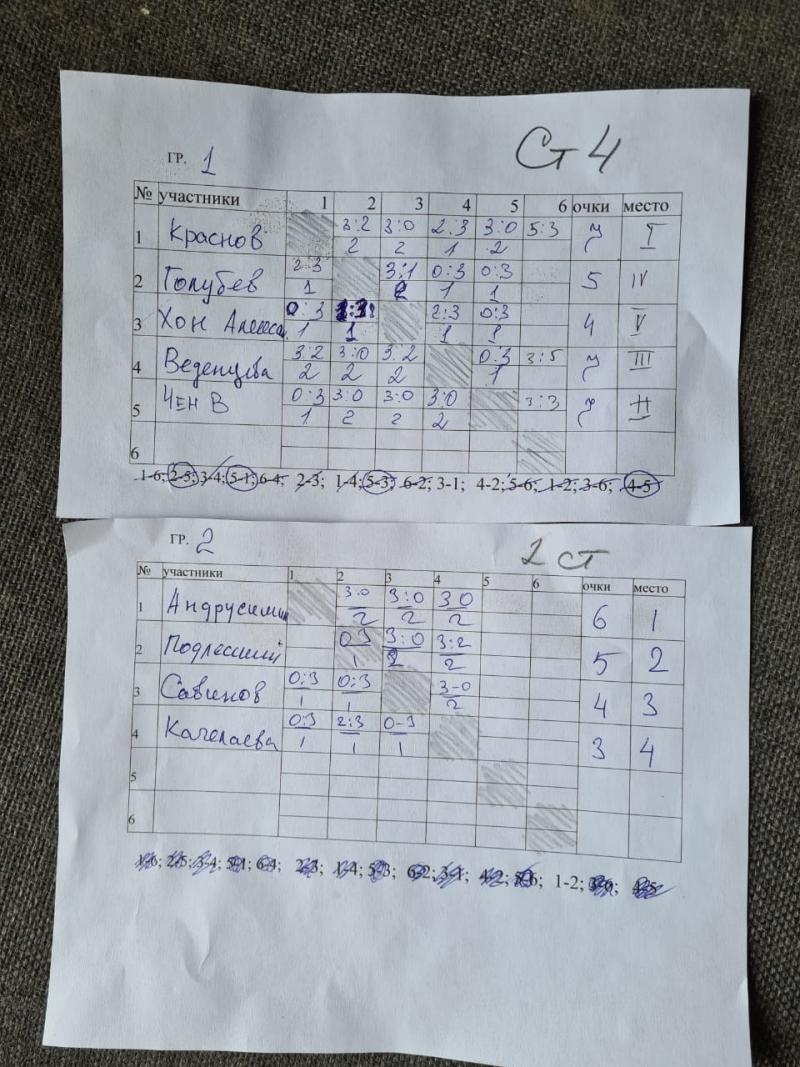 ГР. 1 Ст 4
№ участники 1 2 3 4 5 6 очки место
1 Краснов 3:2 3:0 2:3 3:0 5:3 7 I
2 2 1 2
2 Голубев 2:3 3:1 0:3 0:3 5 IV
1 2 1 1
3 Хон 0:3 2:3 0:3 4 V
1 1 1 1
4 3:2 3:0 3:2 0:3 3:5 7 III
2 2 2 1
5 Чен В 0:3 3:0 3:0 3:0 3:3 7 II
1 2 2 2
6
1-6; 2-5; 3-4; 5-1; 6-4; 2-3; 1-4; 5-3; 6-2; 3-1; 4-2; 5-6; 1-2; 3-6; 4-5
ГР. 2 2 ст
№ участники 1 2 3 4 5 6 очки место
1 3:0 3:0 3 0 6 1
2 2 2
2 0 3 3:0 3:2 5 2
1 2 2
3 Савинов 0:3 0:3 3-0 4 3
1 1 2
4 0:3 2:3 0-3 3 4
1 1 1
5
6
1-6; 2-5; 3-4; 5-1; 6-4; 2-3; 1-4; 5-3; 6-2; 3-1; 4-2; 5-6; 1-2; 3-6; 4-5